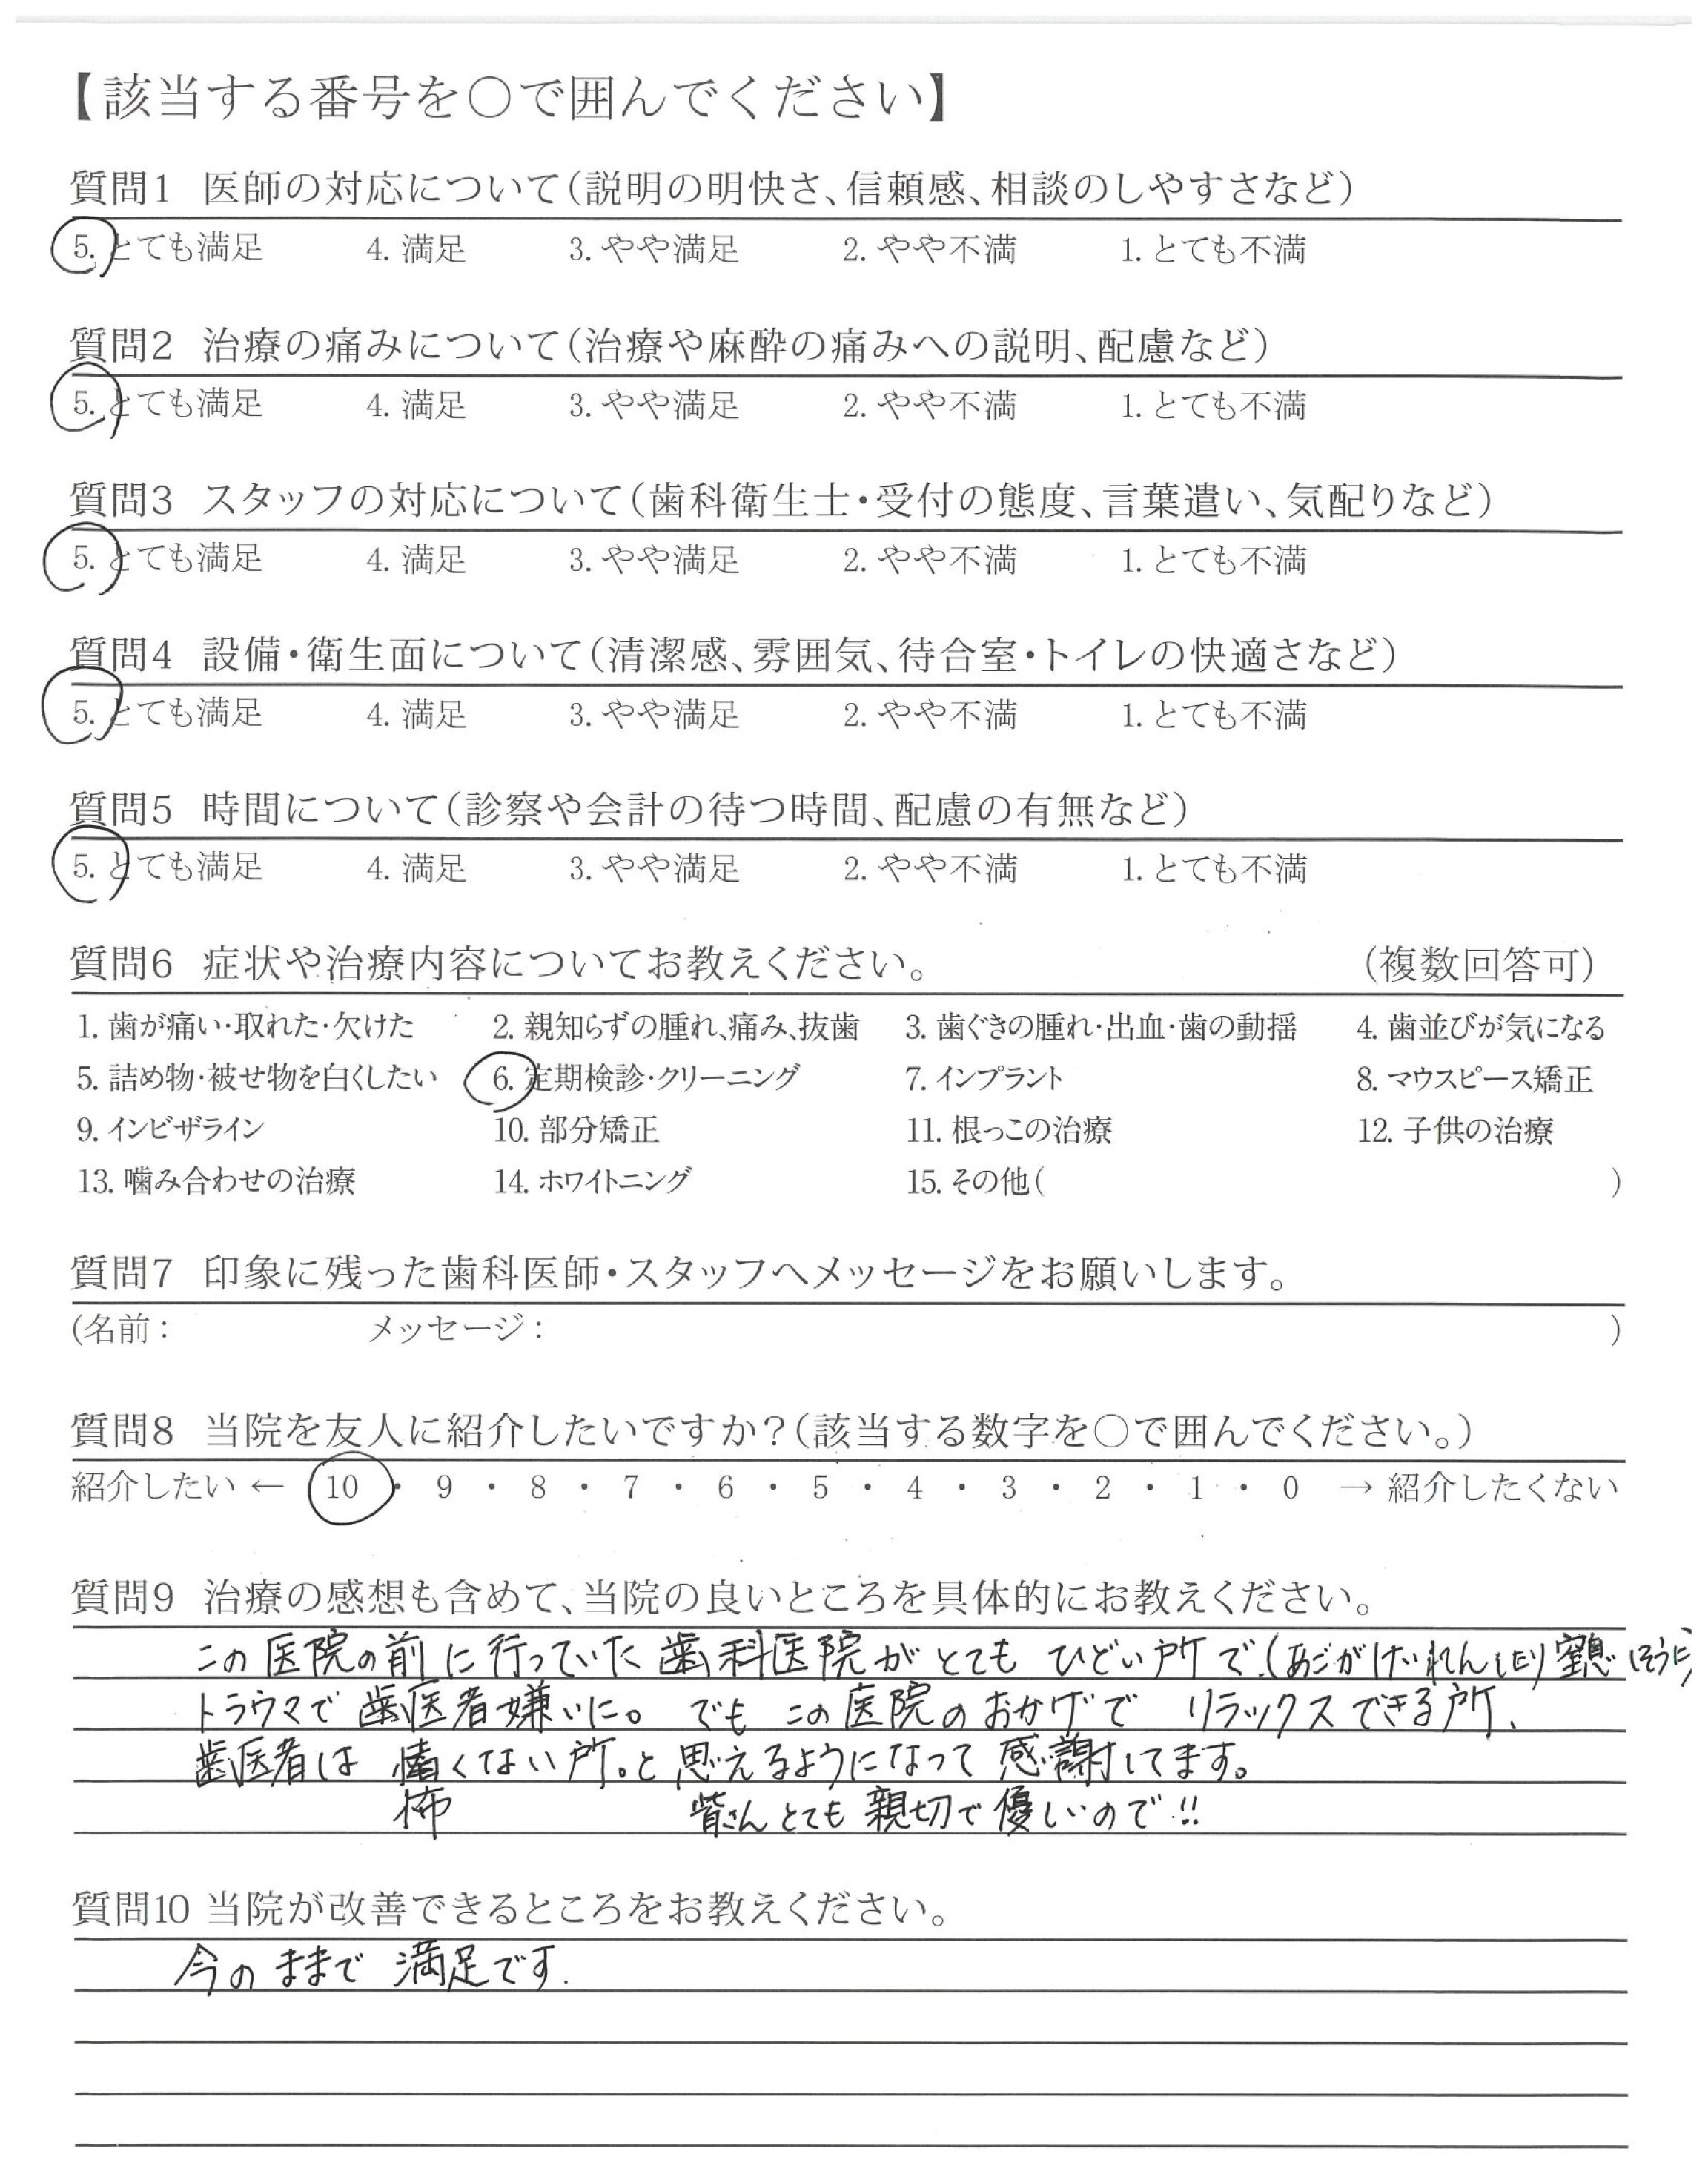 【該当する番号を○で囲んでください】
質問1 医師の対応について(説明の明快さ、信頼感、相談のしやすさなど)
5. とても満足 4. 満足 3. やや満足 2. やや不満 1. とても不満
質問2 治療の痛みについて(治療や麻酔の痛みへの説明、配慮など)
5. とても満足 4. 満足 3. やや満足 2. やや不満 1. とても不満
質問3 スタッフの対応について(歯科衛生士・受付の態度、言葉遣い、気配りなど)
5. とても満足 4. 満足 3. やや満足 2. やや不満 1. とても不満
質問4 設備・衛生面について(清潔感、雰囲気、待合室・トイレの快適さなど)
5. とても満足 4. 満足 3. やや満足 2. やや不満 1. とても不満
質問5 時間について(診察や会計の待つ時間、配慮の有無など)
5. とても満足 4. 満足 3. やや満足 2. やや不満 1. とても不満
質問6 症状や治療内容についてお教えください。 (複数回答可)
1. 歯が痛い・取れた・欠けた 2. 親知らずの腫れ、痛み、抜歯 3. 歯ぐきの腫れ・出血・歯の動揺 4. 歯並びが気になる
5. 詰め物・被せ物を白くしたい 6. 定期検診・クリーニング 7. インプラント 8. マウスピース矯正
9. インビザライン 10. 部分矯正 11. 根っこの治療 12. 子供の治療
13. 噛み合わせの治療 14. ホワイトニング 15. その他( )
質問7 印象に残った歯科医師・スタッフへメッセージをお願いします。
(名前: メッセージ: )
質問8 当院を友人に紹介したいですか?(該当する数字を○で囲んでください。)
紹介したい ← 10 ・ 9 ・ 8 ・ 7 ・ 6 ・ 5 ・ 4 ・ 3 ・ 2 ・ 1 ・ 0 → 紹介したくない
質問9 治療の感想も含めて、当院の良いところを具体的にお教えください。
この医院の前に行っていた歯科医院がとてもひどい所で、(あごがけいれんしたり窒息しそうに)
トラウマで歯医者嫌いに。でもこの医院のおかげでリラックスできる所、
歯医者は くない所。と思えるようになって感謝してます。
怖 皆さんとても親切で優しいので!!
質問10 当院が改善できるところをお教えください。
今のままで満足です.